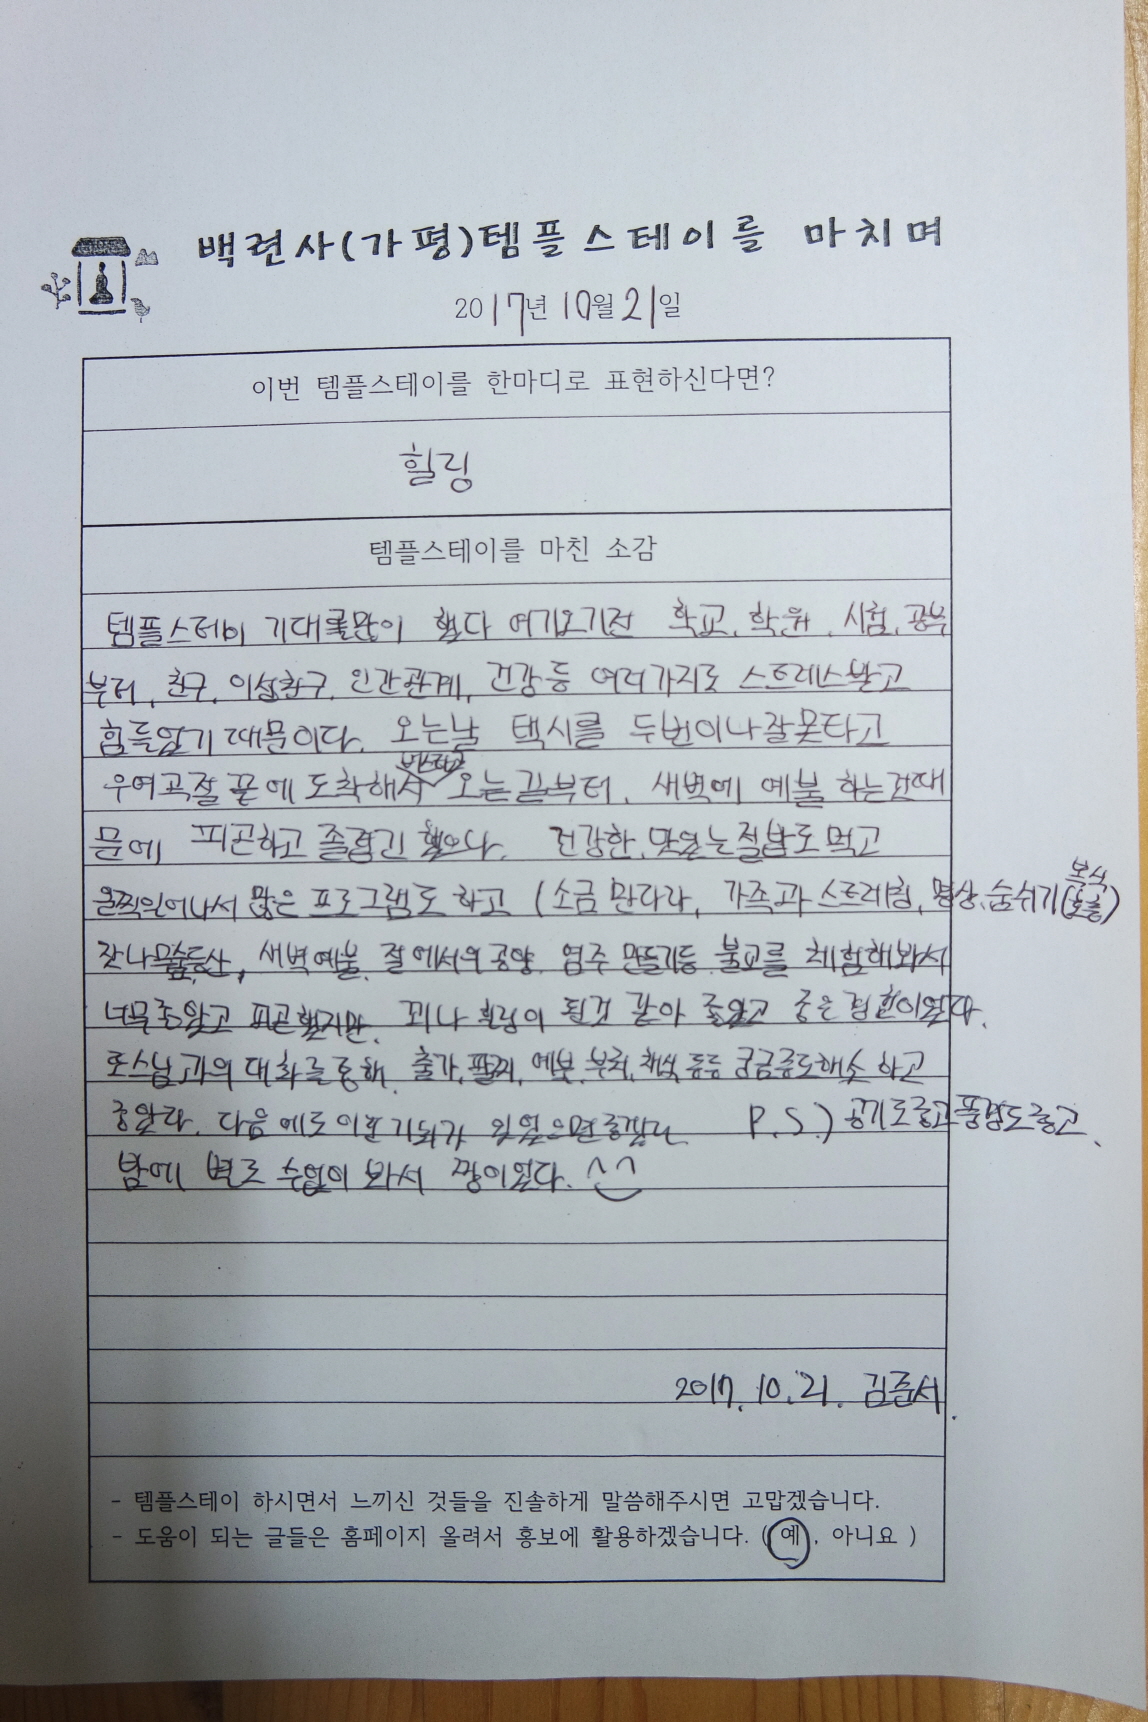 백련사(가평)템플스테이를 마치며
2017년 10월 21일
이번 템플스테이를 한마디로 표현하신다면?
힐링
템플스테이를 마친 소감
템플스테이 기대를많이 했다 여기오기전 학교, 학원, 시험, 공부
부터, 친구, 이성친구, 인간관계, 건강등 여러가지로 스트레스받고
힘들었기 때문이다. 오는날 택시를 두번이나잘못타고
우여곡절 끝에 도착해서 오는길부터, 새벽에 예불 하는것때
문에 피곤하고 졸렵긴 했으나. 건강한, 맛있는절밥도먹고
일찍일어나서 많은 프로그램도 하고 (소금 만다라, 가족과 스트레칭, 명상, 숨쉬기(복식호흡)
잣나무숲등산, 새벽예불, 절에서의공양, 염주 만들기등 불교를 체험해봐서
너무좋았고 피곤했지만, 꾀나 힐링이 된것 같아 좋았고 좋은경험이었다.
또스님과의 대화를통해, 출가, 예불, 부처, 등등 궁금증도해소 하고
좋았다. 다음에도이런기회가 있었으면좋겠다 P.S.) 공기도좋고풍경도좋고,
밤에 별도 수없이 봐서 짱이었다. ^^
2017. 10. 21. 김준서.
- 템플스테이 하시면서 느끼신 것들을 진솔하게 말씀해주시면 고맙겠습니다.
- 도움이 되는 글들은 홈페이지 올려서 홍보에 활용하겠습니다. (예, 아니요 )